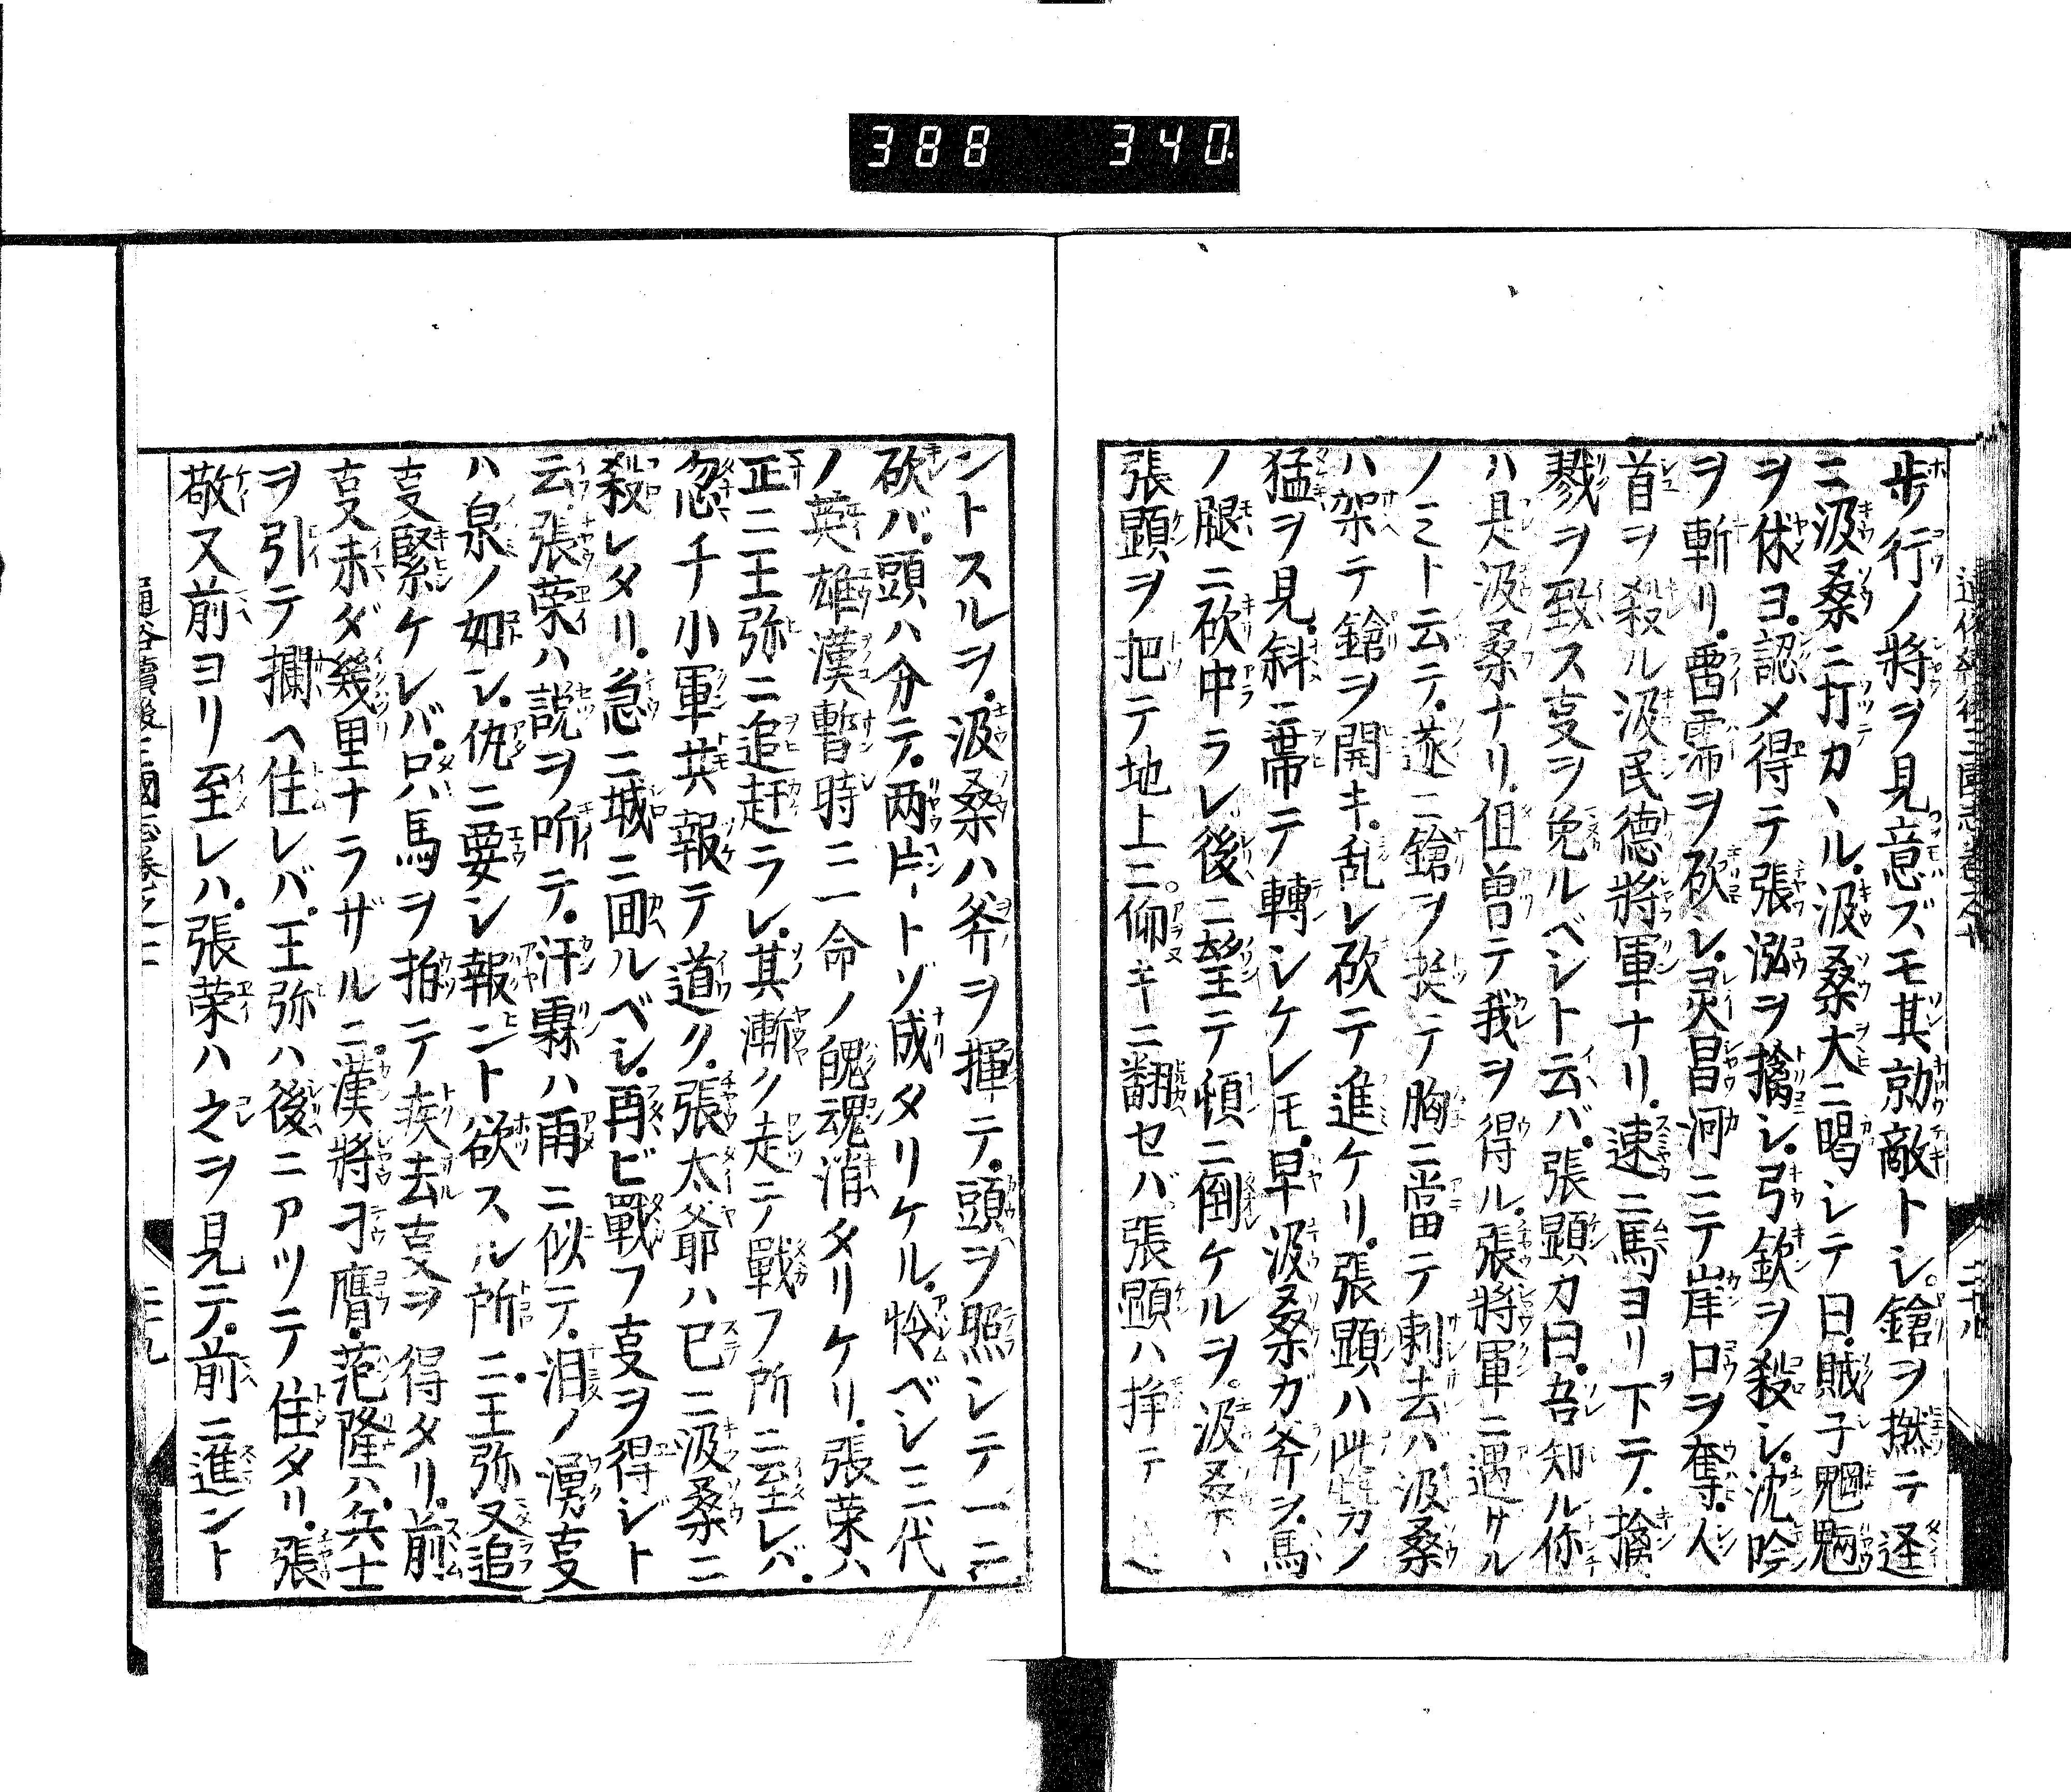 388 340
歩行ノ將ヲ見意ズモ其勍敵トシ。鎗ヲ撚テ逕
ニ汲桑ニ打カヽル。汲桑大ニ喝シテ曰。賊子魍魎
ヲ休ヨ。認メ得テ張泓ヲ擒シ。弓欽ヲ殺シ。沈吟
ヲ斬リ。酉霈ヲ砍シ。灵昌河ニテ岸口ヲ奪。人
首ヲ殺ル汲民德將軍ナリ。速ニ馬ヨリ下テ。擒
戮ヲ致ス叓ヲ免ルベシト云バ。張顕カ曰。吾知ル你
ハ是汲桑ナリ。但曽テ我ヲ得ル。張將軍ニ遇サル
ノミト云テ。遂ニ鎗ヲ挺テ胸ニ當テ刺去ハ汲桑
ハ架テ鎗ヲ開キ。乱レ砍テ進ケリ。張顕ハ此カノ
猛ヲ見。斜ニ帯テ轉シケレ𪜈。早汲桑ガ斧ヲ。馬
ノ腿ニ砍中ラレ後ニ蹩テ頓ニ倒ケルヲ。汲桑
張顕ヲ把テ地上ニ仰キニ翻セバ。張顕ハ挣テ
ントスルヲ。汲桑ハ斧ヲ揮テ。頭ヲ照シテ一ニ
砍バ。頭ハ分テ。两片トゾ成タリケル。怜ベシ三代
ノ英雄漢暫時ニ一命ノ魄魂消タリケリ。張荣ハ
正ニ王弥ニ追赶ラレ。其漸ク走テ戰フ所ニ至レバ。
忽チ小軍共報テ道ク。張太爺ハ已ニ汲桑ニ
殺レタリ。急ニ城ニ囬ルベシ。再ビ戰フ叓ヲ得ジト
云。張荣ハ説ヲ听テ。汗霖ハ雨ニ似テ。泪ノ湧叓
ハ泉ノ如シ。仇ニ要シ報ント欲スル所ニ。王弥又追
叓緊ケレバ。只馬ヲ拍テ疾去叓ヲ得タリ。前
叓未ダ幾里ナラザルニ。漢將刁膺。范隆ハ。兵士
ヲ引テ攔ヘ住レバ。王弥ハ後ニアツテ住タリ。張
敬又前ヨリ至レハ。張荣ハ之ヲ見テ。前ニ進ント
通俗續後三國志卷之二 二十九